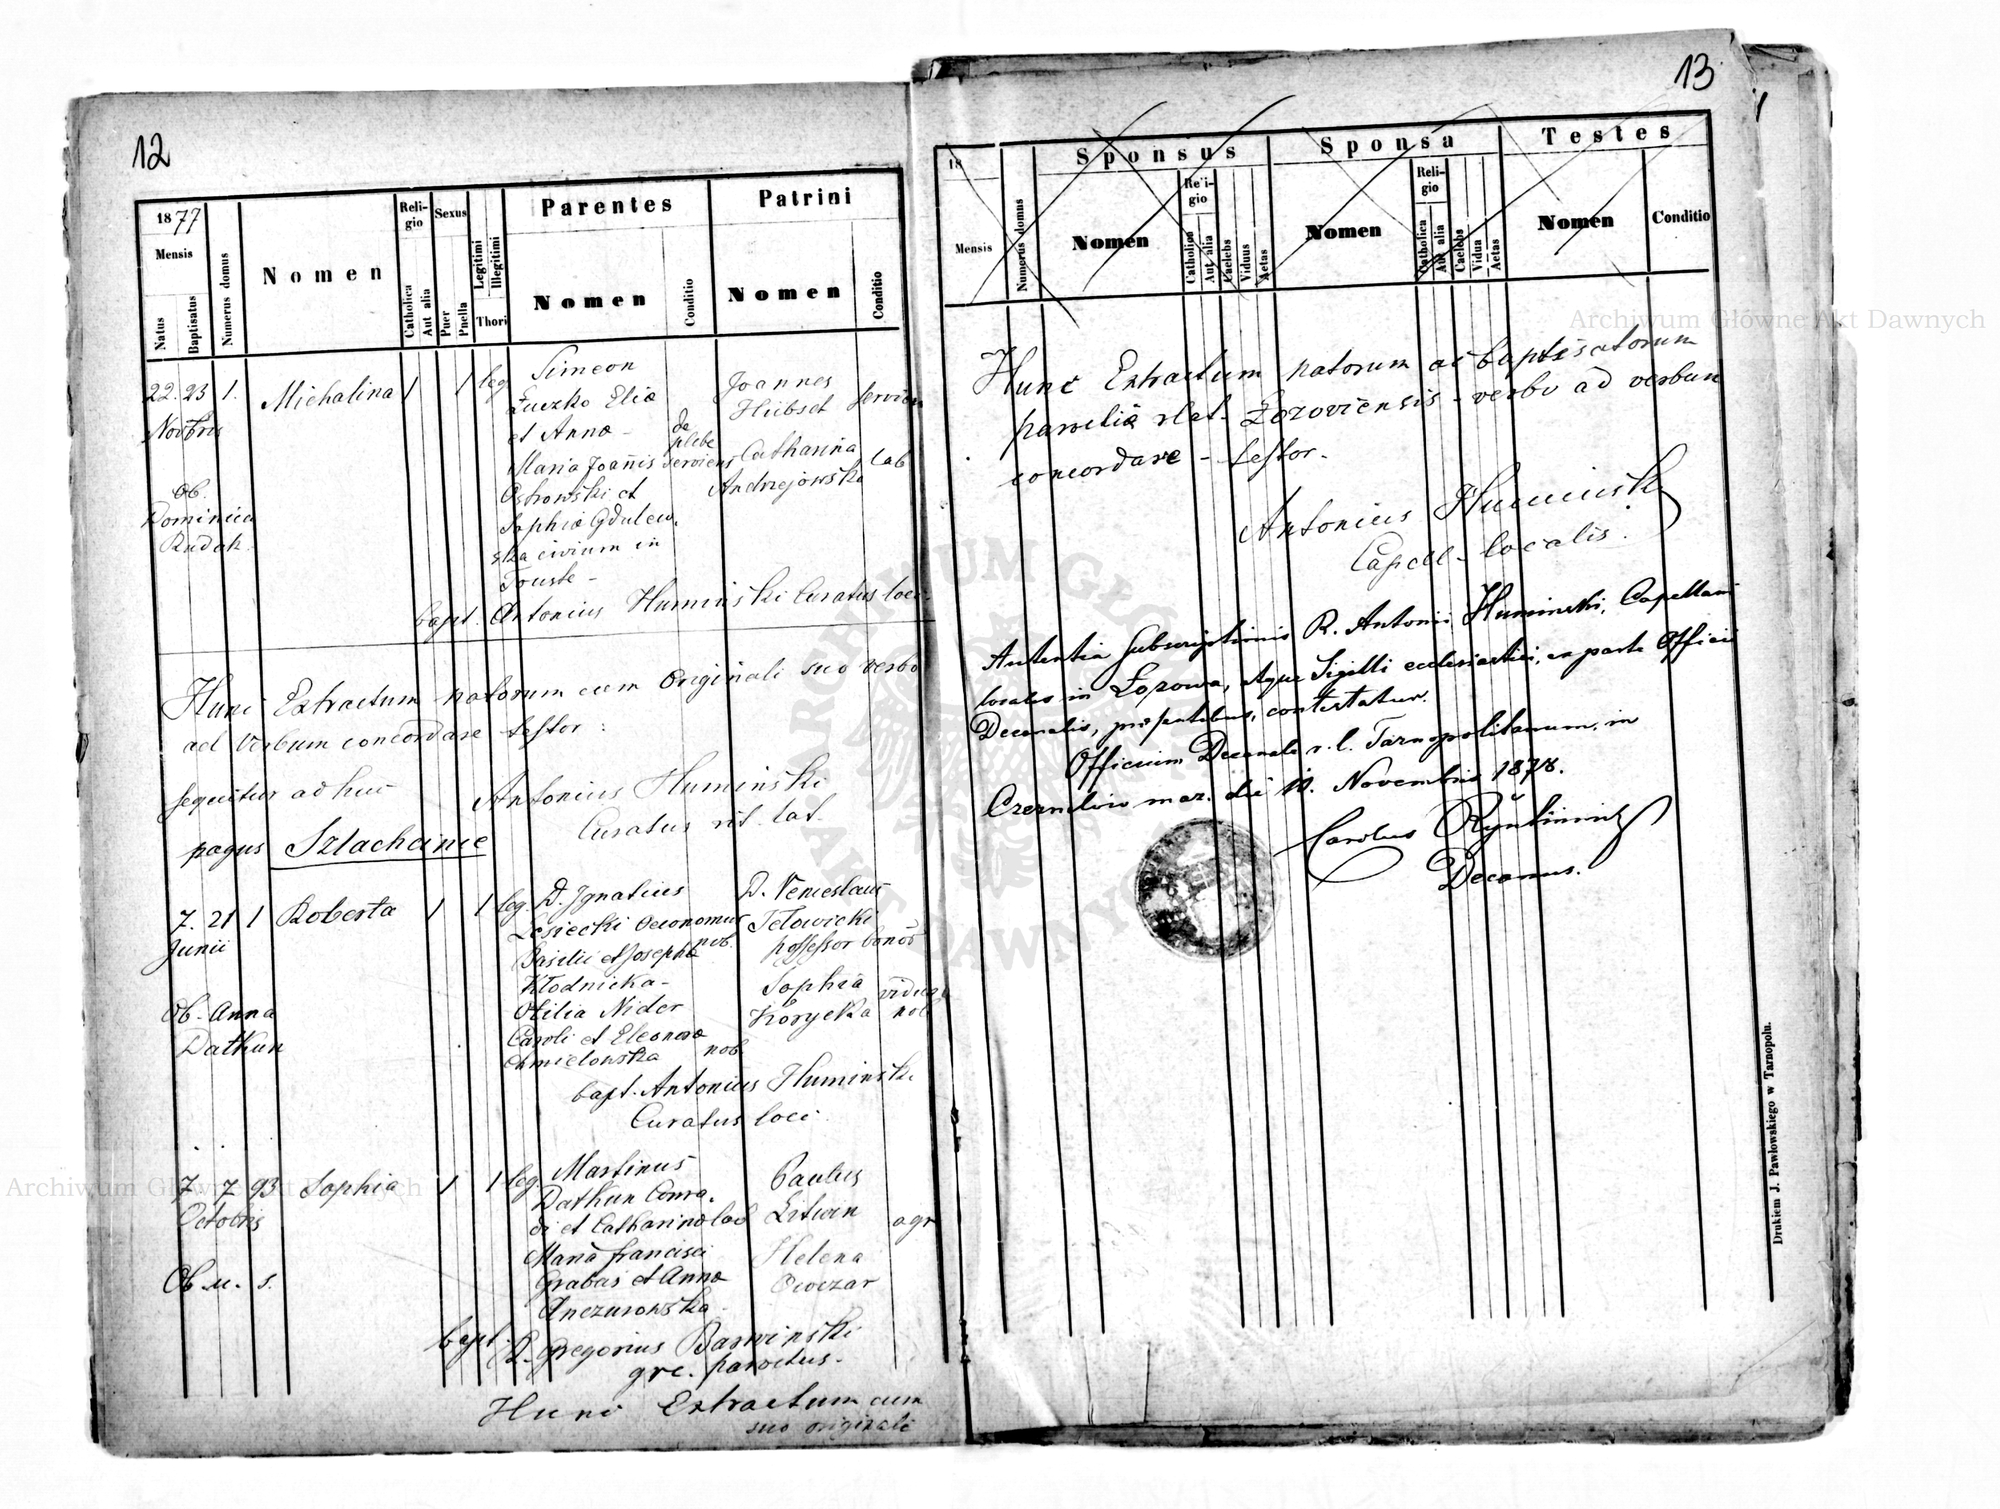 12
1877
Mensis
Natus
Baptisatus
Numerus domus
Nomen
Religio
Catholica
Aut alia
Sexus
Puer
Puella
Legitimi
Illegitimi
Thori
Parentes
Nomen
Conditio
Patrini
Nomen
Conditio
22. 23 1. Michalina 1 1 leg Simeon Joannes
Łuczko Eliæ Hübset
Novbris et Annæ - de plebe
Maria Joañis serviens Catharina lab
Ob. Ostrowski et Andrzejowska
Dominica Sophiæ Gdulew.
Rudak. ska civium in
Touste -
bapt. Antonius Humiński Curatus loci
Hunc Extractum natorum cum Originali suo verbo
ad verbum concordare testor :
sequitur ad huc Antonius Humiński
Curatus rit. lat.
pagus Szlachcince
7. 21 1 Roberta 1 1 leg. D. Ignatius D. Venceslaus
Junii Lesiecki Oeconomus
Basilii et Josepha nob. possessor bonor
Kłodnicka - Sophia vidua
Ob. Anna Otilia Nider Korycka nob
Dathun Caroli et Eleonoræ
Chmielowska nob.
bapt. Antonius Humiński
Curatus loci
7 7 93 Sophia 1 1 leg. Martinus Paulus
Octobris Dathun Conra- Litwin
di et Catharinæ lab agr
Maria Francisci Helena
Ob. u. s. Grabas et Annæ Owczar
Anczurowska.
bapt. R. Gregorius Barwinski
grc. parochus.
Hunc Extractum cum
suo originali
13
18
Mensis
Numerus domus
Sponsus
Nomen
Religio
Catholica
Aut alia
Caelebs
Viduus
Aetas
Sponsa
Nomen
Religio
Catholica
Aut alia
Caelebs
Vidua
Aetas
Testes
Nomen
Conditio
Hunc Extractum natorum ac baptisatorum
parochiæ rlat. Łozoviensis - verbo ad verbum
concordare - testor.
Antonius Humiński
Capell - localis.
Autentia Subscriptionis R. Antonii Huminski, Capellani
localis in Łozowa, Atque Sigilli ecclesiastici, ex parte Officii
Decanalis, præsentibus, contestatur.
Officium Decanale r. l. Tarnopolitanum, in
Czernelow maz. die 10. Novembris 1878.
Carolus
Decanus.
Drukiem J. Pawłowskiego w Tarnopolu.
Archiwum Główne Akt Dawnych
Archiwum Główne Akt Dawnych
ARCHIWUM GŁÓWNE AKT DAWNYCH